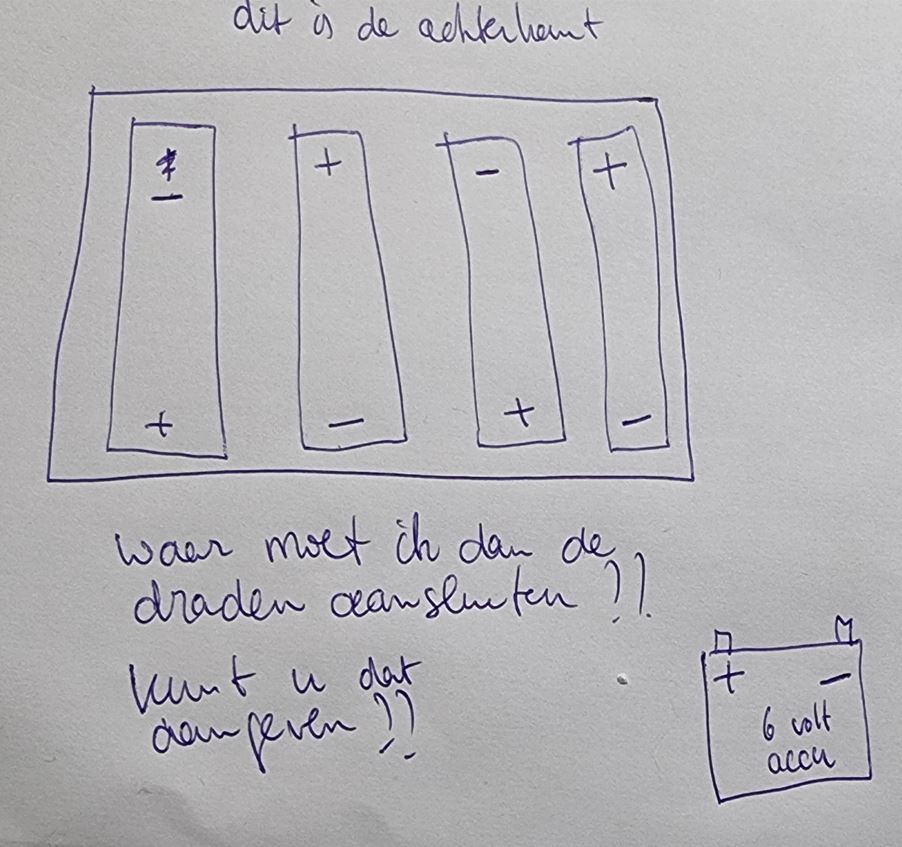 dit is de achterkant
- + - +
+ - + -
waar moet ik dan de
draden aansluiten ??
kunt u dat
aangeven ??
+ -
6 volt
accu